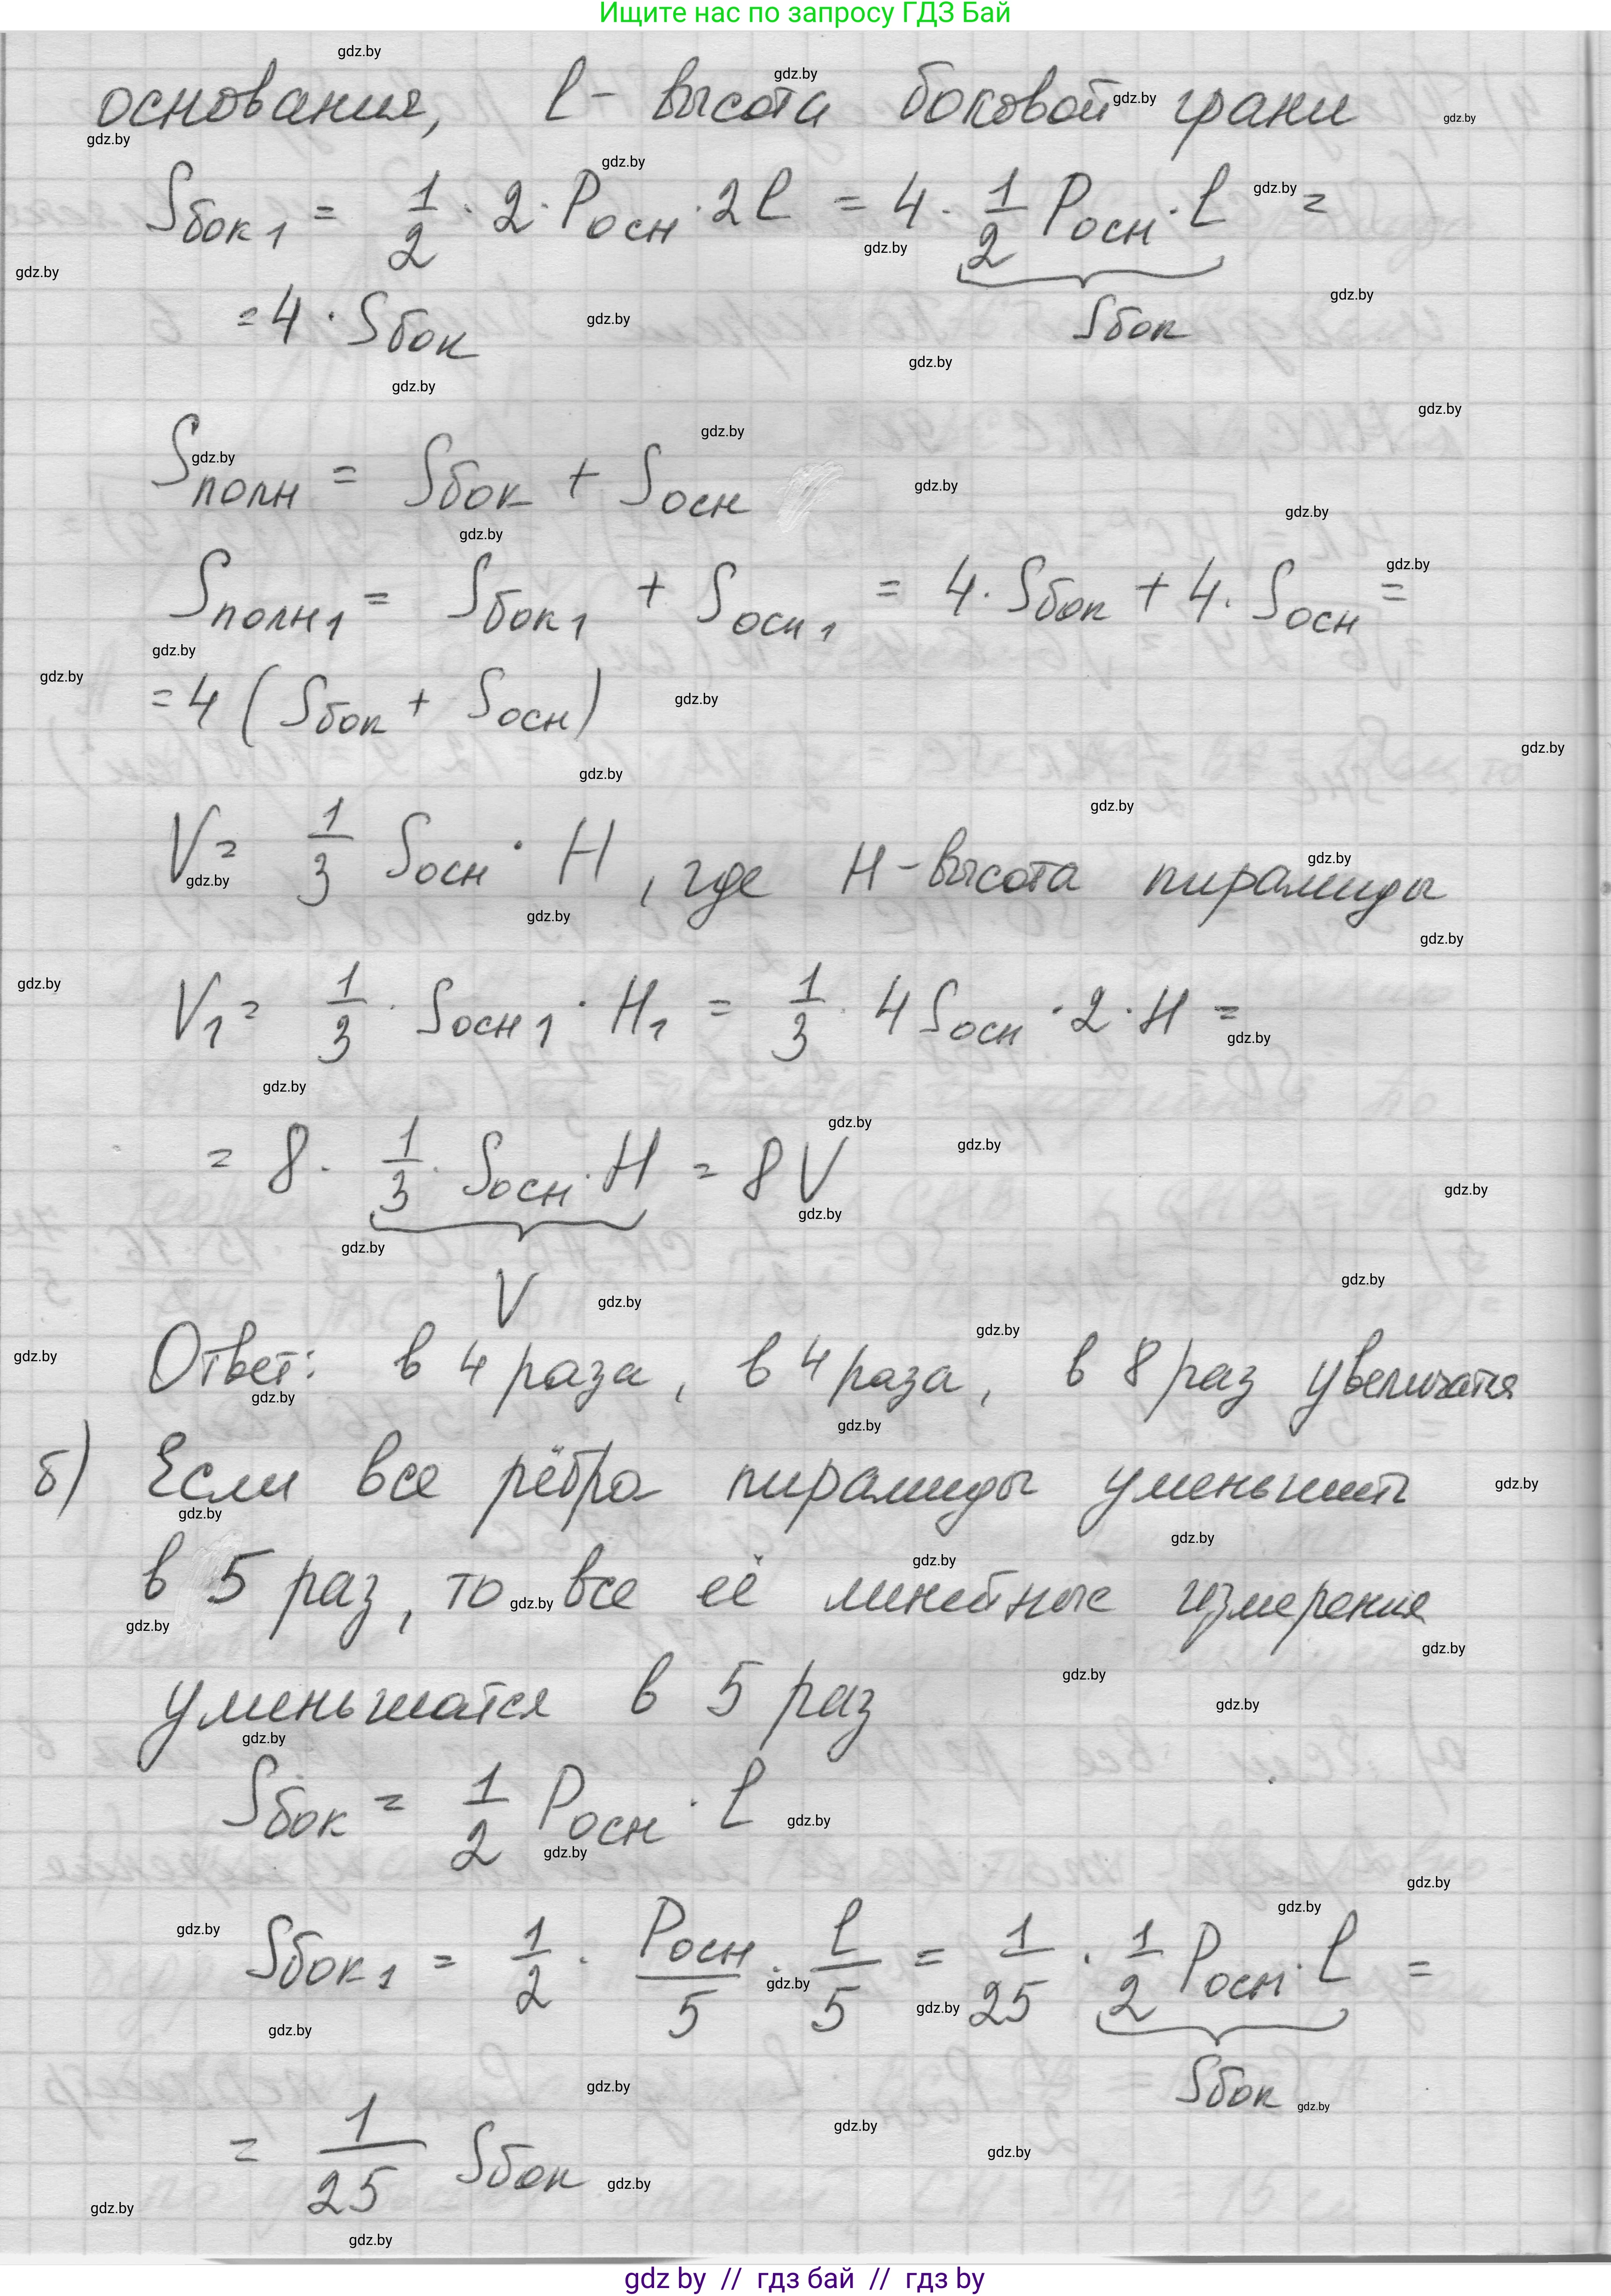 Ищите нас по запросу ГДЗ Бай
основания, l - высота боковой грани
Sбок1 = 1/2 · 2 · Pосн · 2l = 4 · 1/2 Pосн · l =
Sбок
= 4 · Sбок
Sполн = Sбок + Sосн
Sполн1 = Sбок1 + Sосн1 = 4 · Sбок + 4 · Sосн =
= 4 (Sбок + Sосн)
V = 1/3 Sосн · H, где H - высота пирамиды
V1 = 1/3 · Sосн1 · H1 = 1/3 · 4 Sосн · 2 · H =
= 8 · 1/3 · Sосн · H = 8V
V
Ответ: в 4 раза, в 4 раза, в 8 раз увеличатся
б) Если все рёбра пирамиды уменьшить
в 5 раз, то все её линейные измерения
уменьшатся в 5 раз
Sбок = 1/2 Pосн · l
Sбок1 = 1/2 · Pосн/5 · l/5 = 1/25 · 1/2 Pосн · l =
Sбок
= 1/25 Sбок
gdz by // гдз бай // гдз by